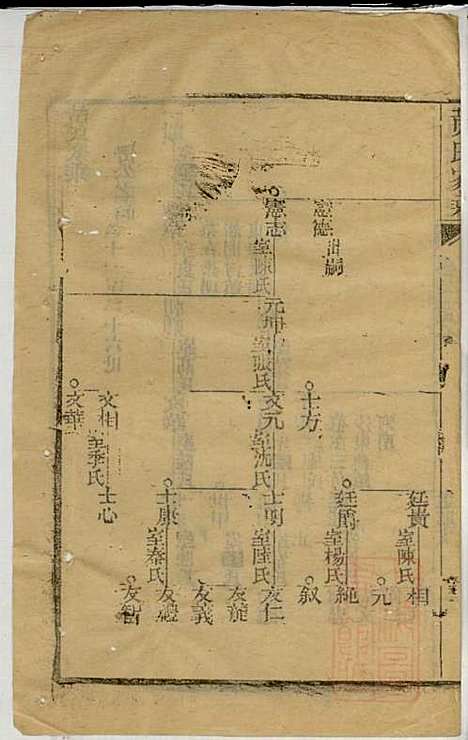 黃氏家
憲德 出嗣
憲志 室陳氏
元坤 室張氏
士方
文元 室沈氏
文相 室季氏
文華
廷貴 室陳氏
廷爵 室楊氏
士明 室陸氏
士康 室秦氏
士心
相
元
繩
叙
友仁
友旋
友義
友禮
友智